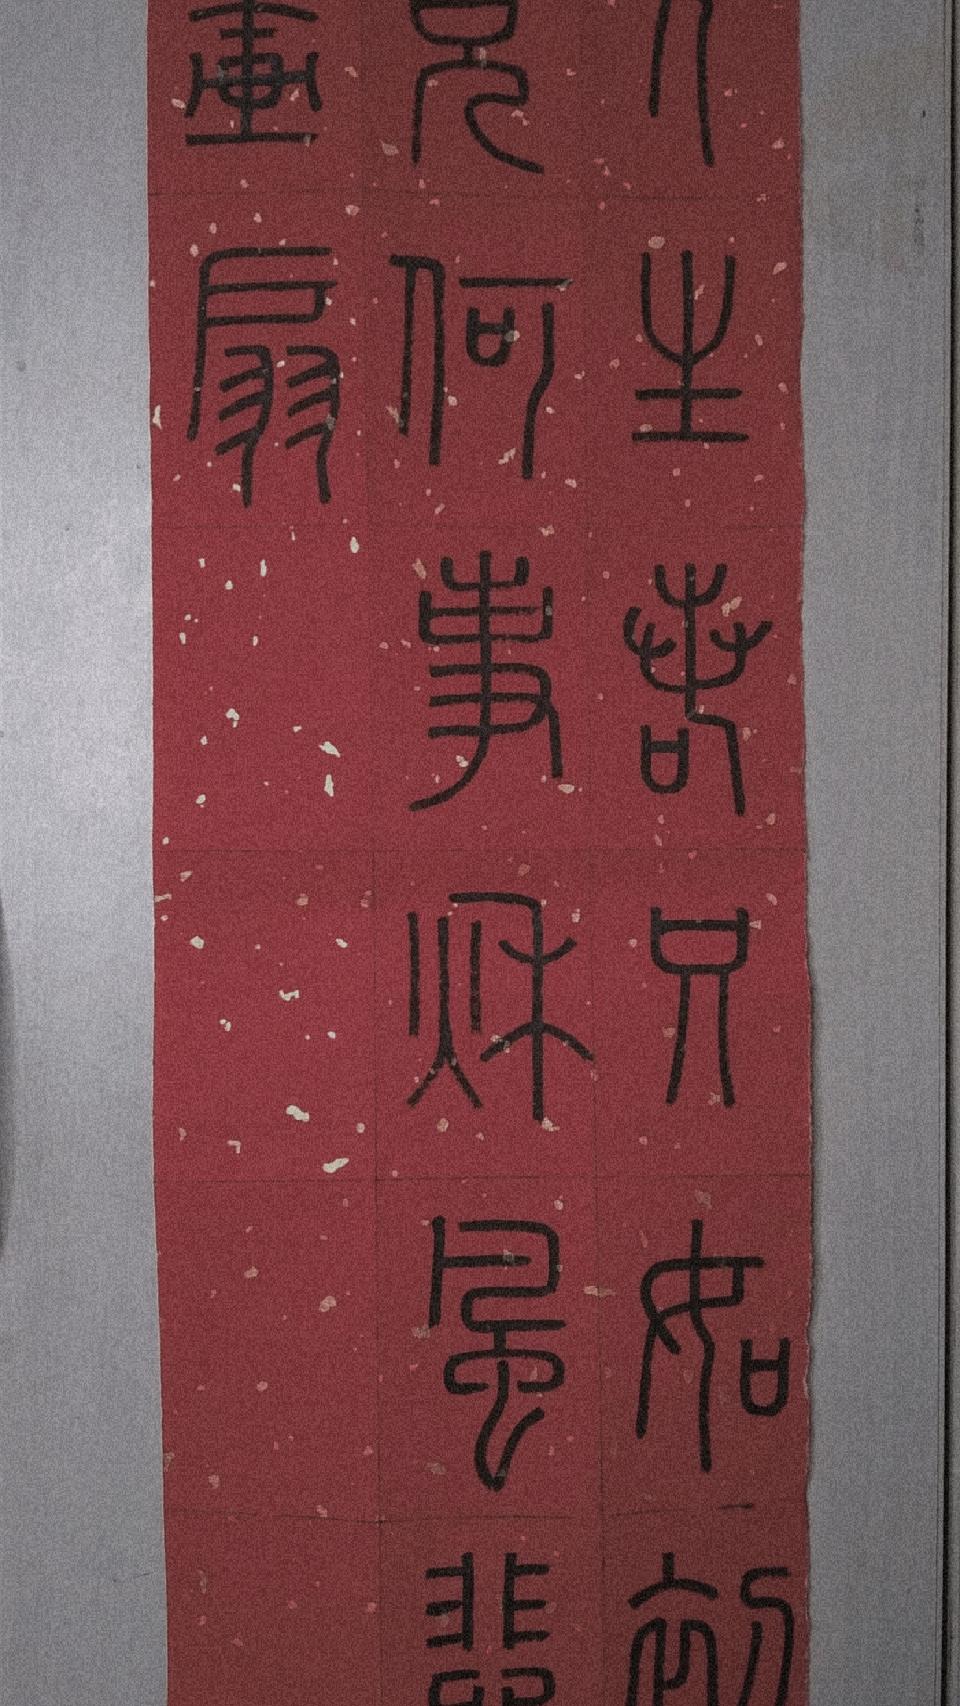 人生若只如初
見何事秋風悲
畫扇